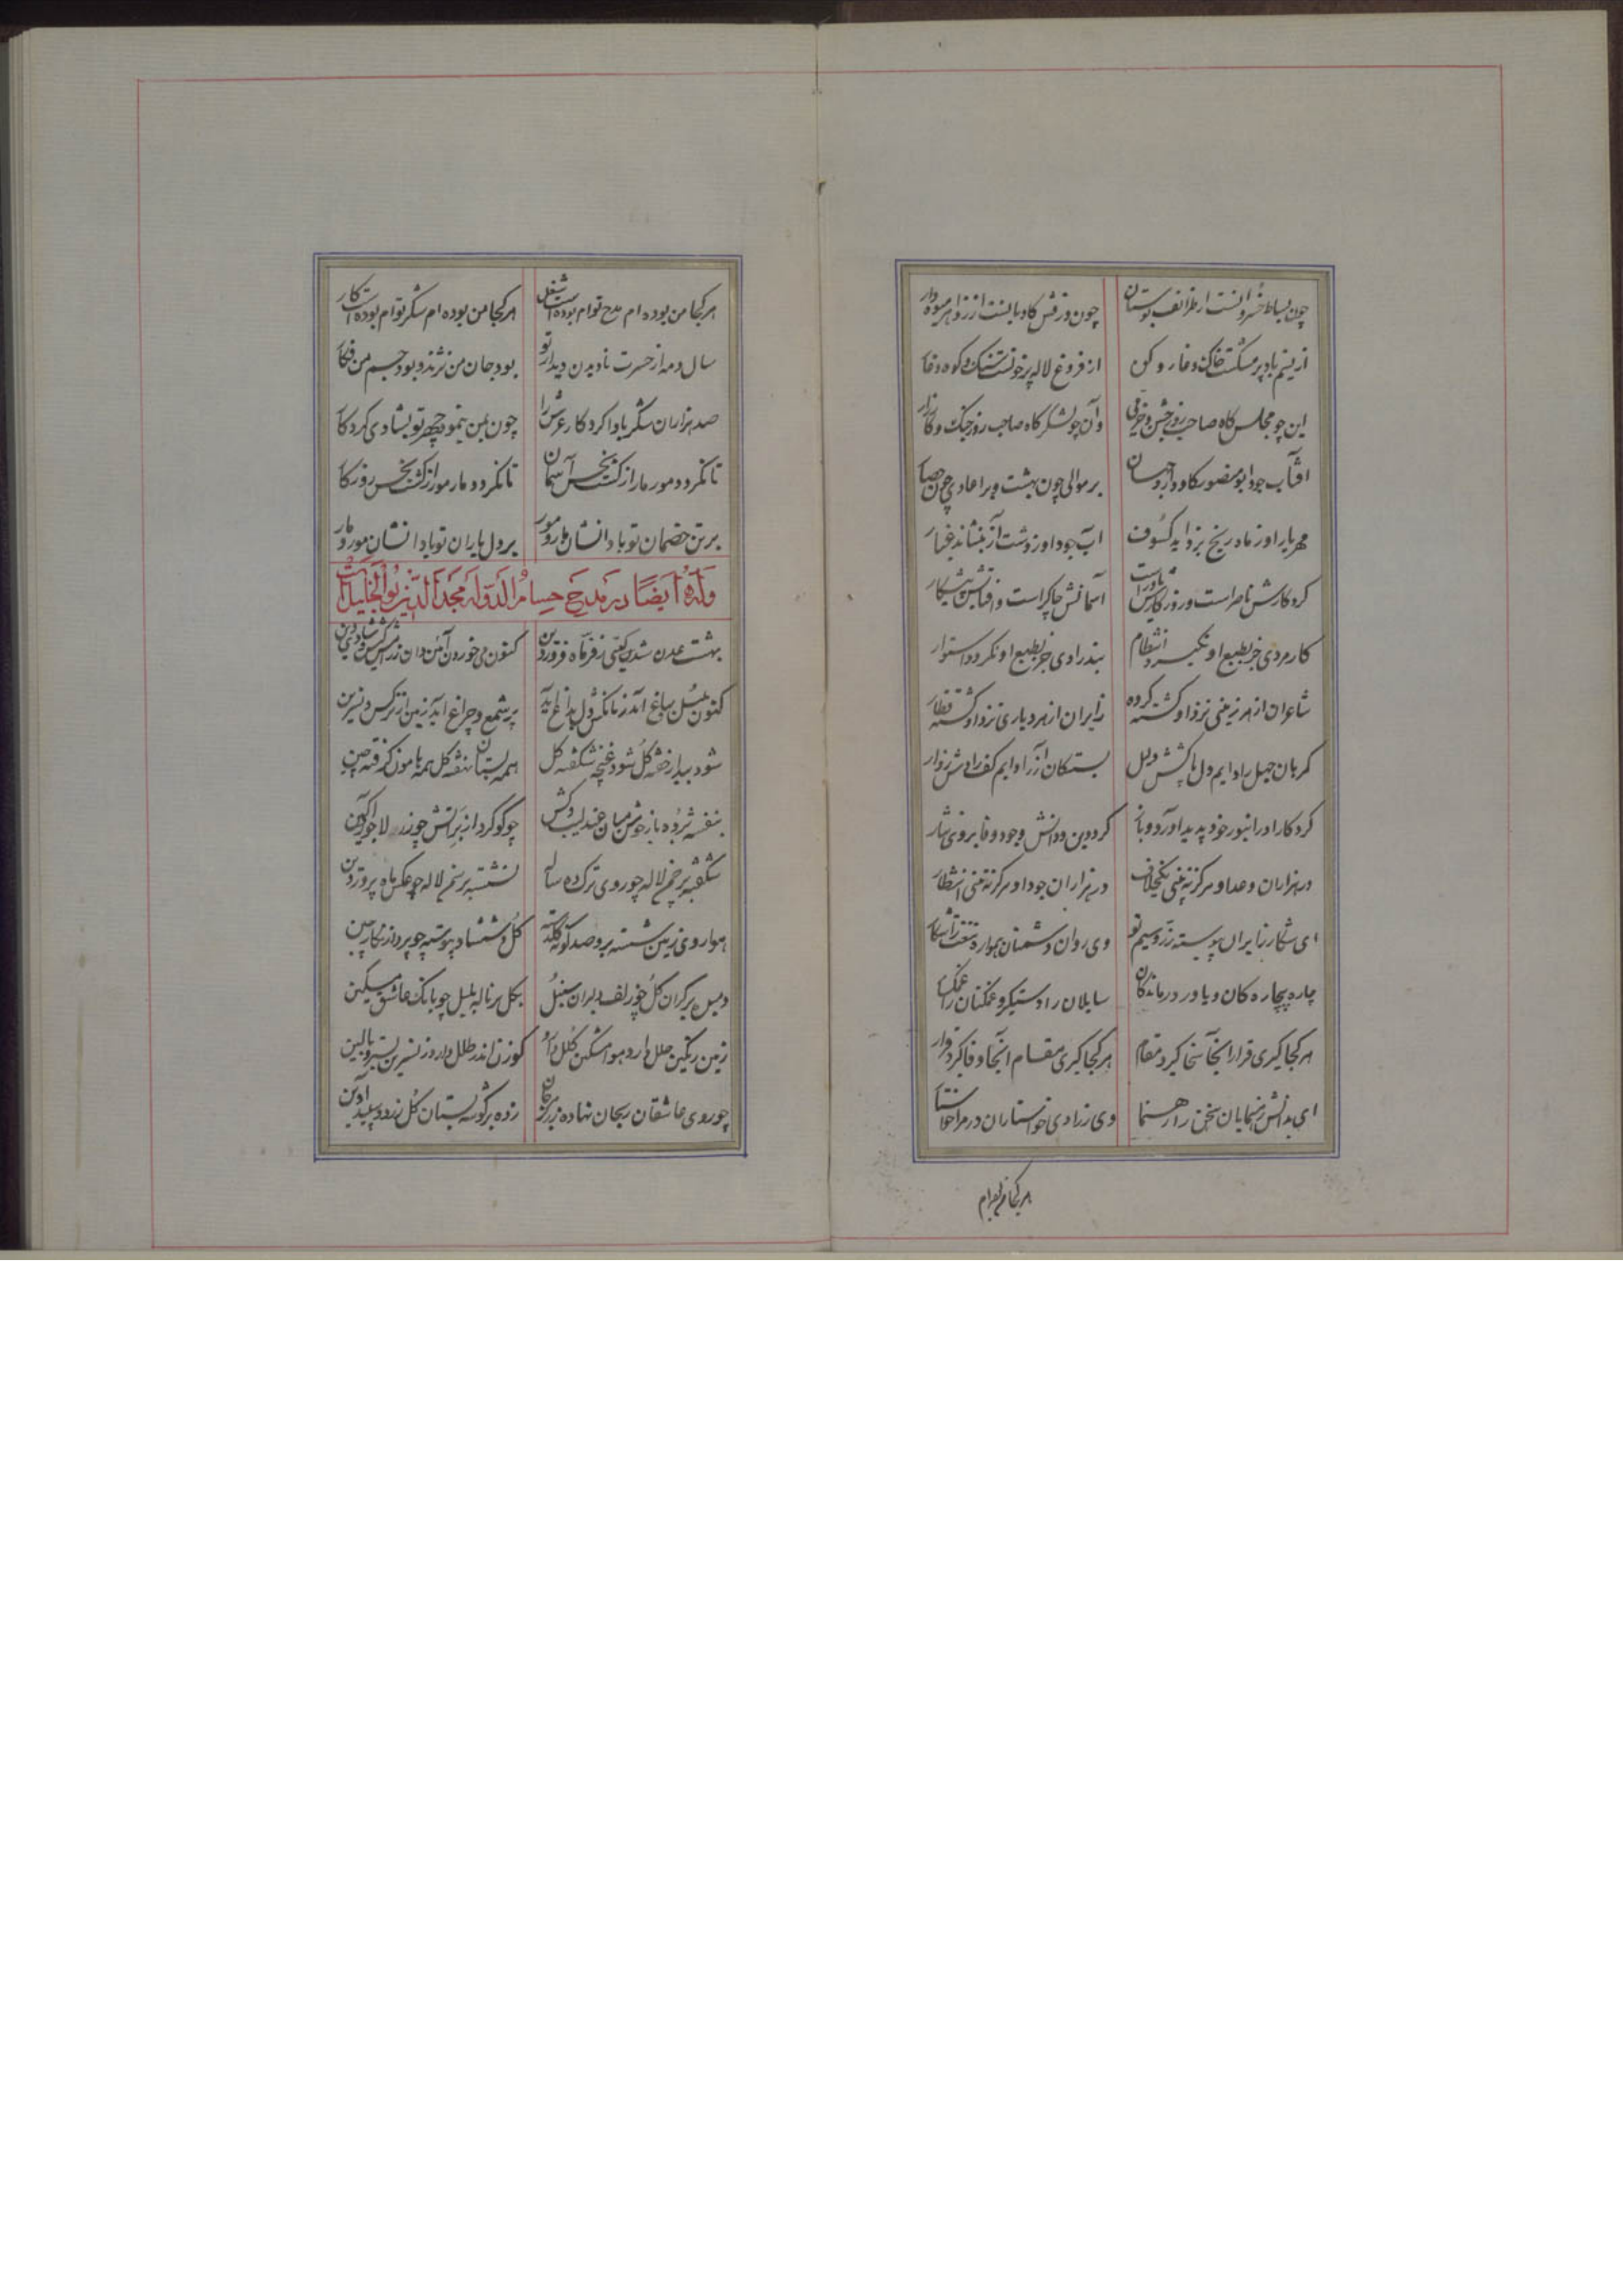 چون بساط خسروانست از طرائف بوستان چون درفش کاویانست از زواهر میوه دار
از نسیم باد پر مشکست خاک و غار و کن از فروغ لاله پر خونست سنک و کوه و غار
این چو مجلس کاه صاحب روز جشن و خرمی وآن چو لشکر کاه صاحب روز جنک و کارزار
افتاب جود ابو منصور کاو دارد جهان بر موالی چون بهشت و بر اعادی چون حصار
مهر یار او ز ماه رنج بزداید کسوف اب جود او ز دشت آز بنشاند غبار
کردکارش ناصر است و روزکارش یاور است آسمانش چاکر است و افتابش پیشکار
کار مردی جز بطبع او نکیرد انتظام بند رادی جز بطبع او نکردد استوار
شاعران از هر زمینی نزد او کشته کروه زایران از هر دیاری نزد او کشته قطار
کربان جهل را دایم دل پاکش دلیل بستکان آز را دایم کف رادش زوار
کردکار او را بنور خود پدید آورد و باز کرد دین و دانش و جود و وفا بر وی نثار
در هزاران وعد او هرکز نه بینی یکخلاف در هزاران جود او هرکز نه بینی انتظار
ای شکار زایران پیوسته زر و سیم تو وی روان دشمنان همواره تیغت را شکار
چاره بیچاره کان و یاور درماندکان سایلان را دستکیر و غمکنان را غمکسار
هر کجا کیری قرار انجا سخا کیرد مقام هر کجا کیری مقام انجا وفا کیرد قرار
ای بدانش رهنمایان سخن را رهنما وی زرادی خواستاران درم را خواستار
هر کجا من بوده ام
هر کجا من بوده ام مدح توام بوده است شغل هر کجا من بوده ام شکر توام بوده است کار
سال و مه از حسرت نادیدن دیدار تو بود جان من نژند و بود جسم من فکار
صد هزاران شکر بادا کردکار عرش را چون بمن بنمود چهر تو بشادی کردکار
تا نکردد مور مار از کشت نحس آسمان تا نکردد مار مور از کشت نحس روزکار
بر تن خصمان تو بادا نشان مار و مور بر دل یاران تو بادا نشان مور و مار
وله ایضا در مدح حسام الدوله مجد الدین بوالخلیل است
بهشت عدن شد کیتی ز فر ماه فروردین کنون می خوردن آئین دان
کنون بلبل بباغ آمد پر شمع و چراغ آید زمین از نرکس و نسرین
شود بیدار خفته کل شود غنچه شکفته کل همه بستان نهفته کل همه هامون کرفته چین
بنفشه چو کوکرد از بر آتش
شکفته بر خم لاله چو روی ترک ده ساله نشسته بر نم لاله چو عکس ماه بر پروین
هوا روی زمین شسته برو صد کونه کل رسته کل و شمشاد پیوسته چو پرواز نکارین
دمیده بر کران کل چو زلف دلبران سنبل بکل بر ناله بلبل چو بانک عاشق مسکین
زمین رنکین حلل دارد هوا مشکین کلل دارد کوزن اندر طلل دارد ز نسرین بستر و بالین
چو روی عاشقان ریحان نهاده زر بر مرجان زده بر کوشه بستان کل زرد و سپید آذین